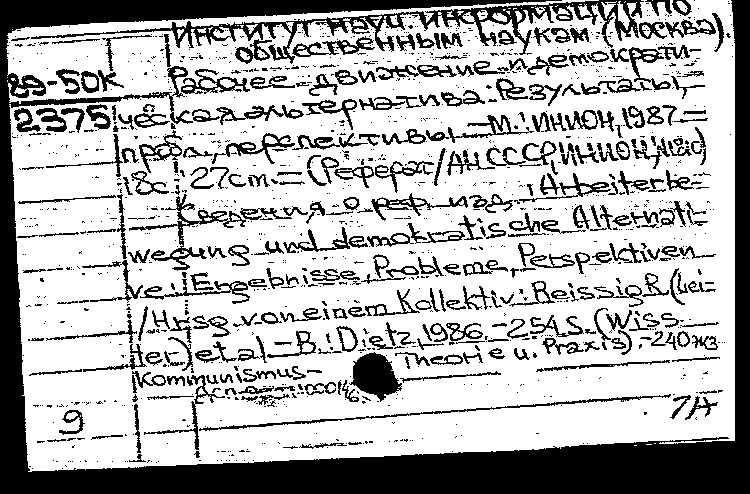 Институт науч. информации по
общественным наукам (Москва).
89-50К Рабочее движение и демократи-
2375 ческая альтернатива: Результаты,
пробл., перспективы. — М.: ИНИОН, 1987. —
18с ; 27см. — (Реферат/АН СССР, ИНИОН;
Сведения о реф. изд.: Arbeiterbe-
wegung und demokratische Alternati-
ve: Ergebnisse, Probleme, Perspektiven
/ Hrsg. von einem Kollektiv: Reissig R. (Lei-
ter) et al. — B.: Dietz, 1986. — 254 S. (Wiss.
Kommunismus —
Theorie u. Praxis). — 240 жз
9